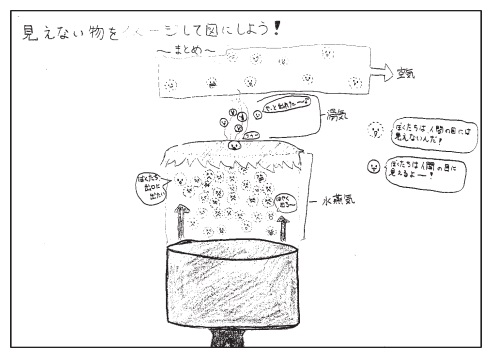 見えない物をイメージして図にしよう！
～まとめ～
空気
やっと出れた～♪
湯気
ぼくたちは人間の目には
見えないんだ！
ぼくたちは人間の目に
見えるよー！
ぼくたち、
出口に
出たい
はやく
出る～
水蒸気